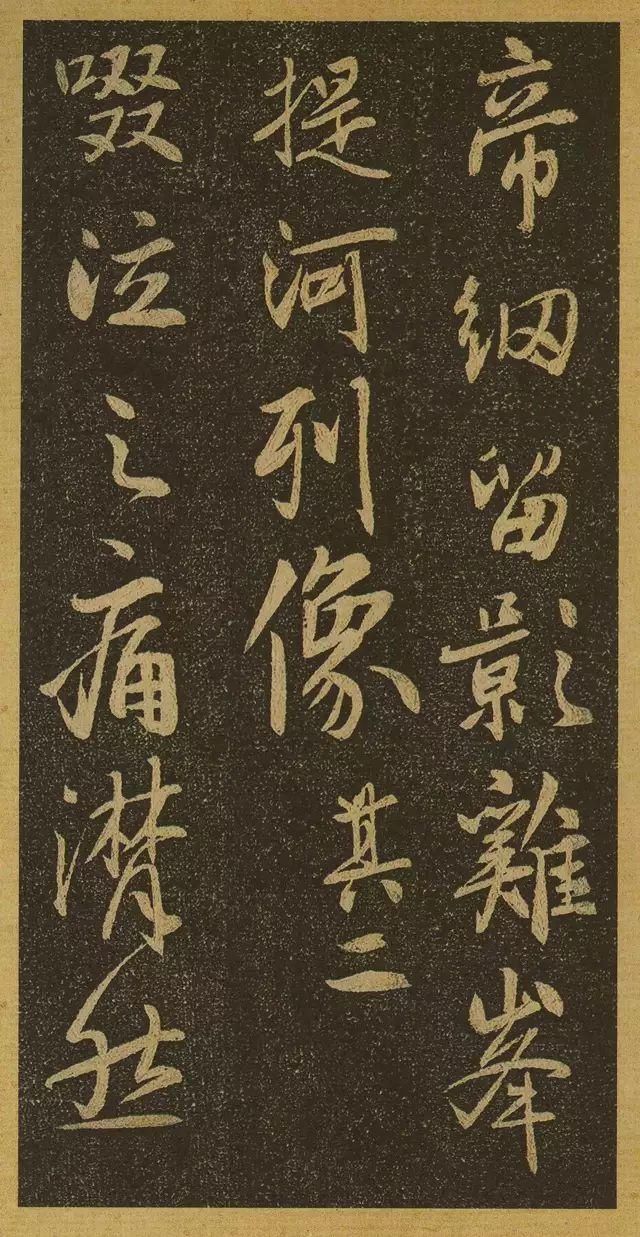 帝網留影雞峯
提河列像 其二
啜泣之痛潸然